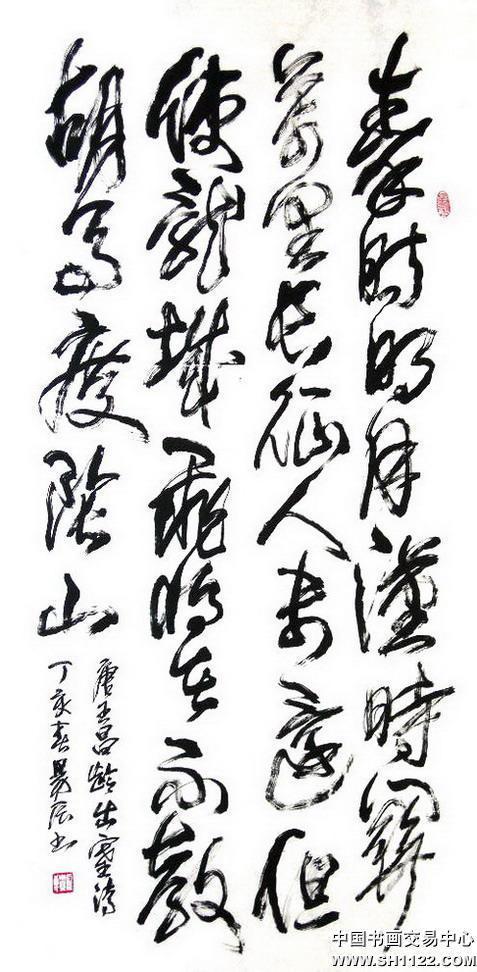 秦时明月漢時關
萬里长征人未還但
使龍城飛將在不教
胡马度陰山
唐王昌齡出塞诗
丁亥春书
中国书画交易中心
www.SH1122.COM